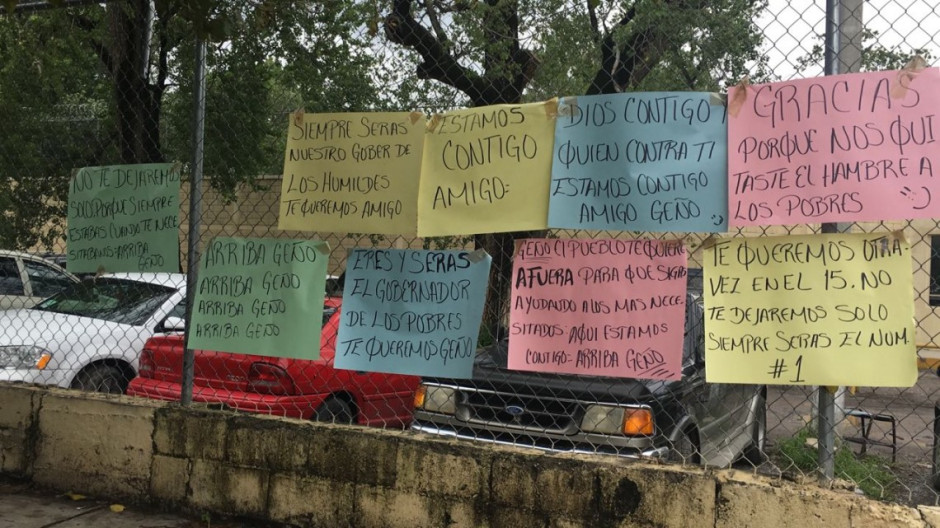 SIEMPRE SERAS
NUESTRO GOBER DE
LOS HUMILDES
TE QUEREMOS AMIGO
ESTAMOS
CONTIGO
AMIGO=
DIOS CONTIGO Y
QUIEN CONTRA TI
ESTAMOS CONTIGO
AMIGO GEÑO :)
GRACIAS
PORQUE NOS QUI
TASTE EL HAMBRE A
LOS POBRES :)
NO TE DEJAREMOS
SOLO PORQUE SIEMPRE
ESTABAS CUANDO TE NECE
SITABAMOS=ARRIBA
ARRIBA GEÑO
ARRIBA GEÑO
ARRIBA GEÑO
ARRIBA GEÑO
ERES Y SERAS
EL GOBERNADOR
DE LOS POBRES
TE QUEREMOS GEÑO
GEÑO EL PUEBLO TE QUIERE
AFUERA PARA QUE SIGAS
AYUDANDO A LOS MAS NECE
SITADOS: AQUI ESTAMOS
CONTIGO= ARRIBA GEÑO
TE QUEREMOS OTRA
VEZ EN EL 15. NO
TE DEJAREMOS SOLO
SIEMPRE SERAS EL NUM.
#1
Ford